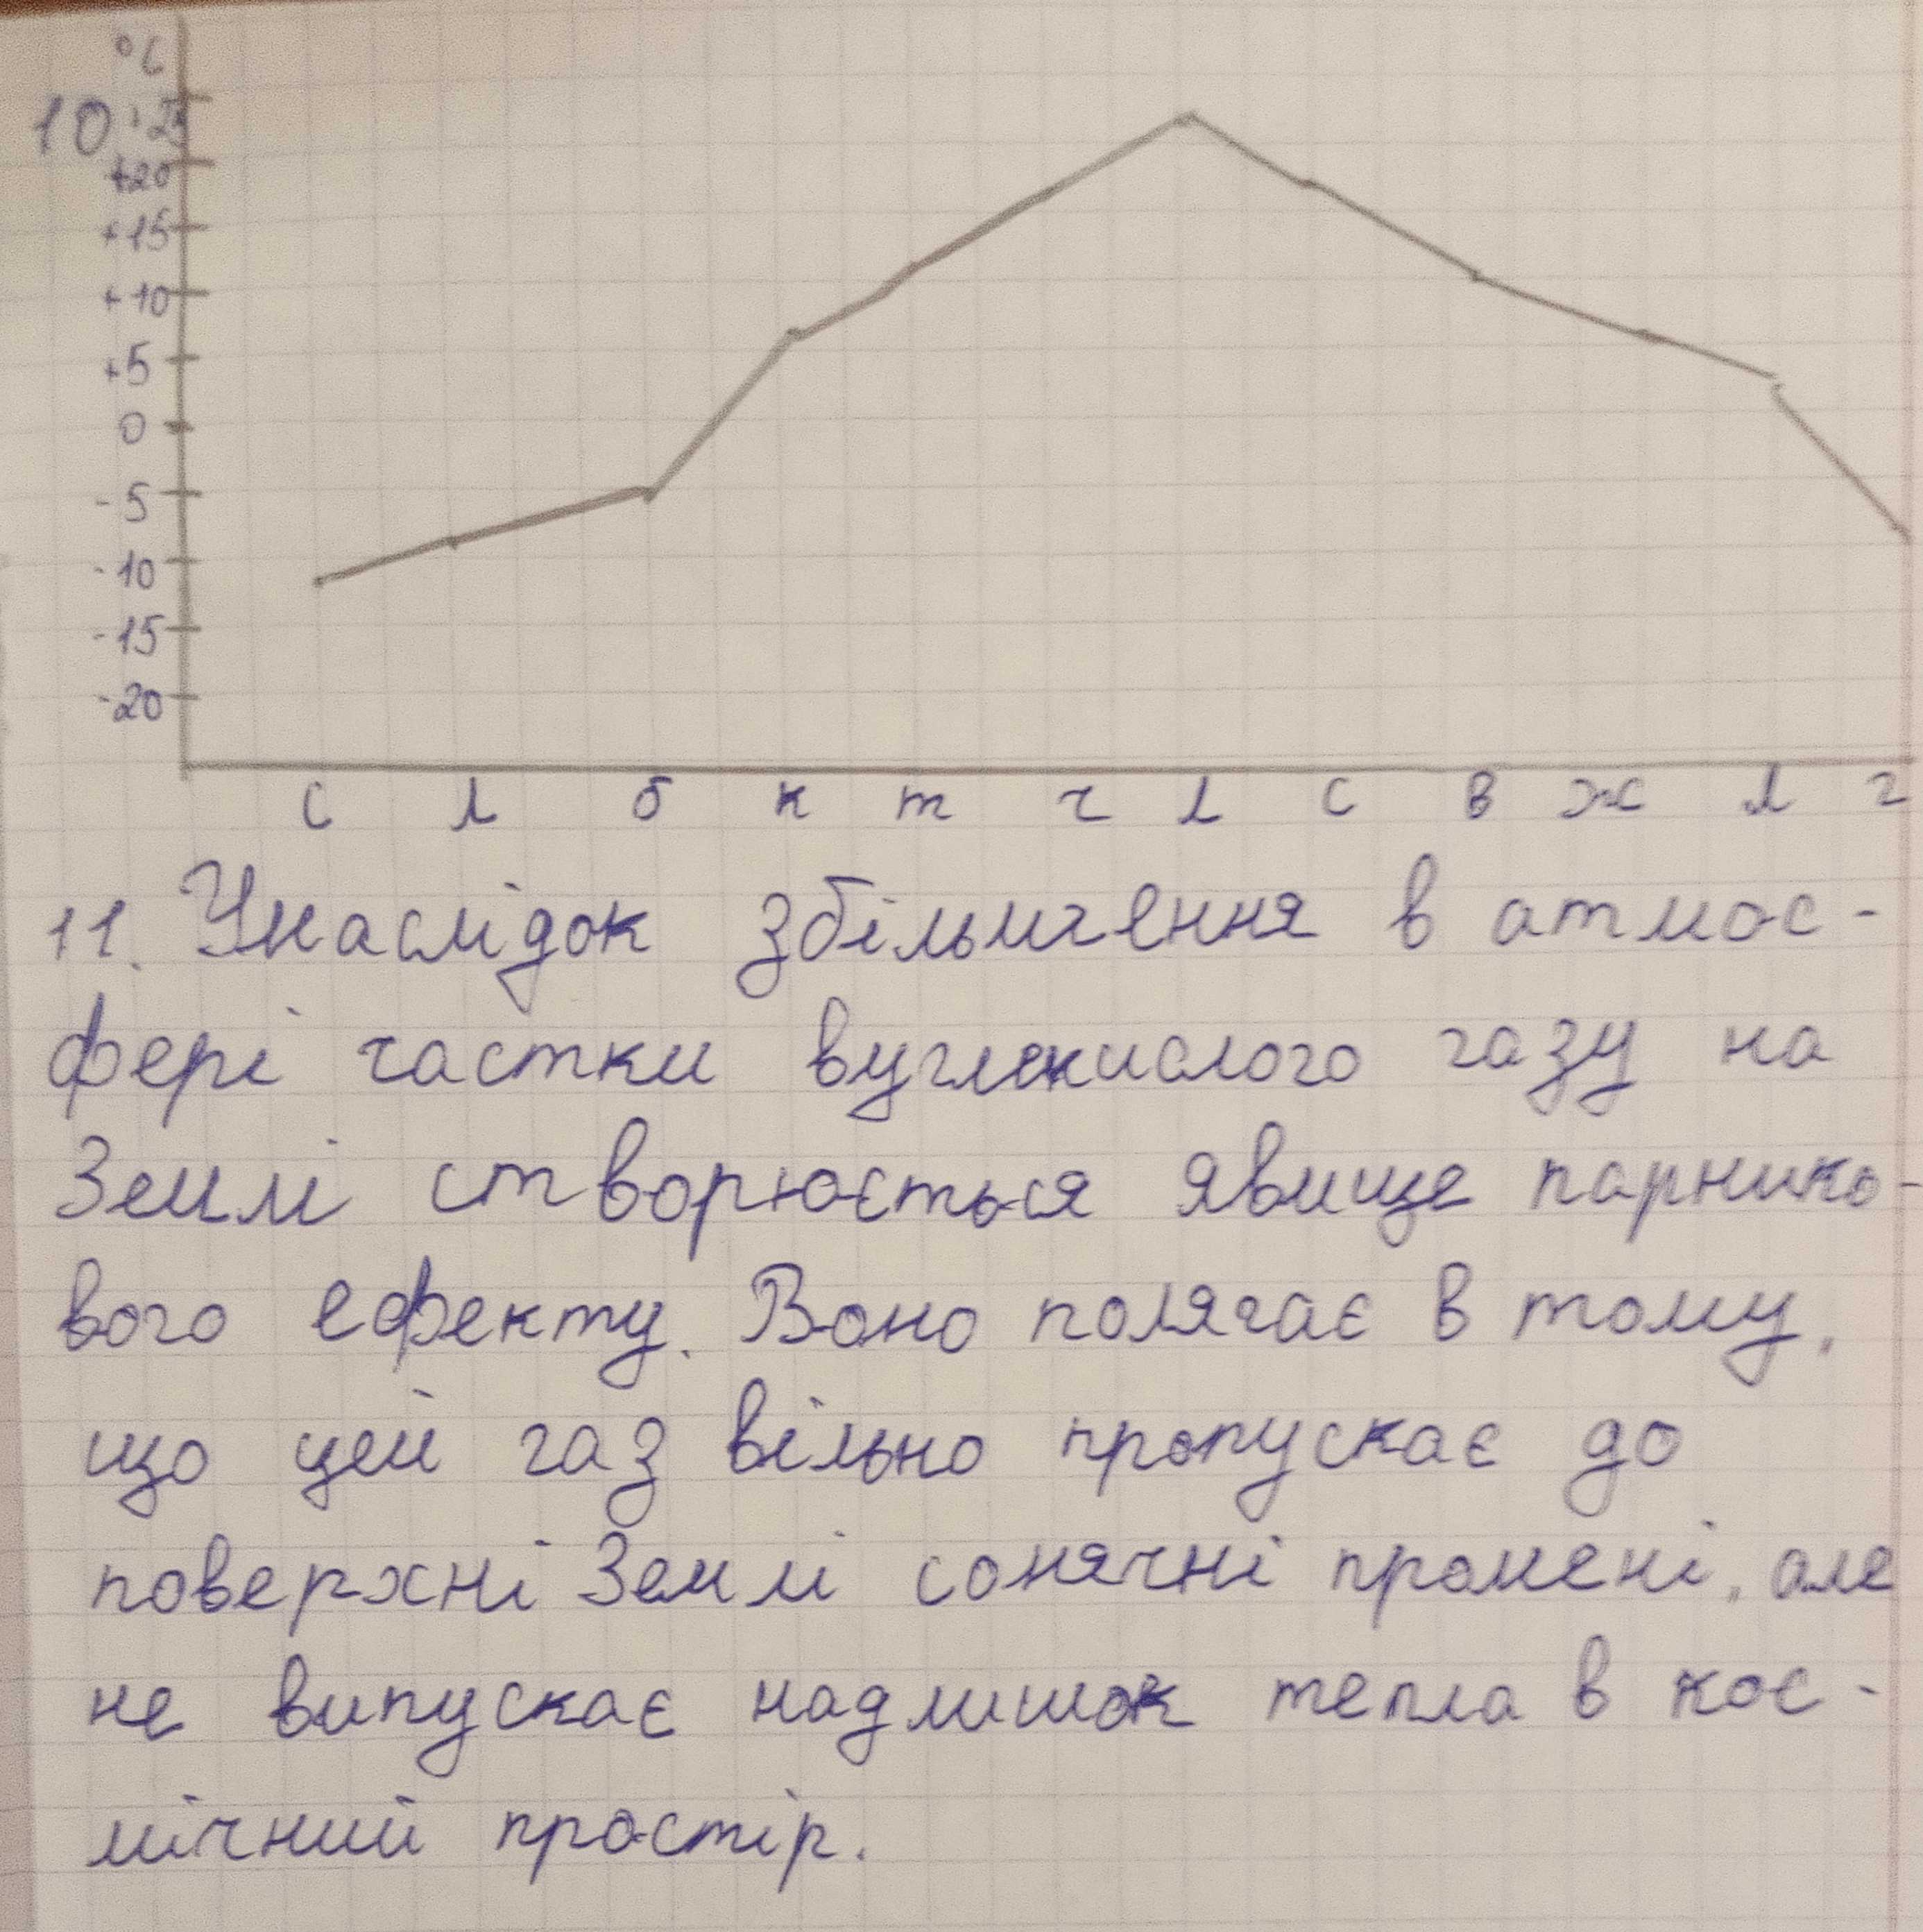 °C
10. +25
+20
+15
+10
+5
0
-5
-10
-15
-20
с л б к т ч л с в ж л г
11. Унаслідок збільшення в атмос-
фері частки вуглекислого газу на
Землі створюється явище парнико-
вого ефекту. Воно полягає в тому,
що цей газ вільно пропускає до
поверхні Землі сонячні промені, але
не випускає надлишок тепла в кос-
мічний простір.